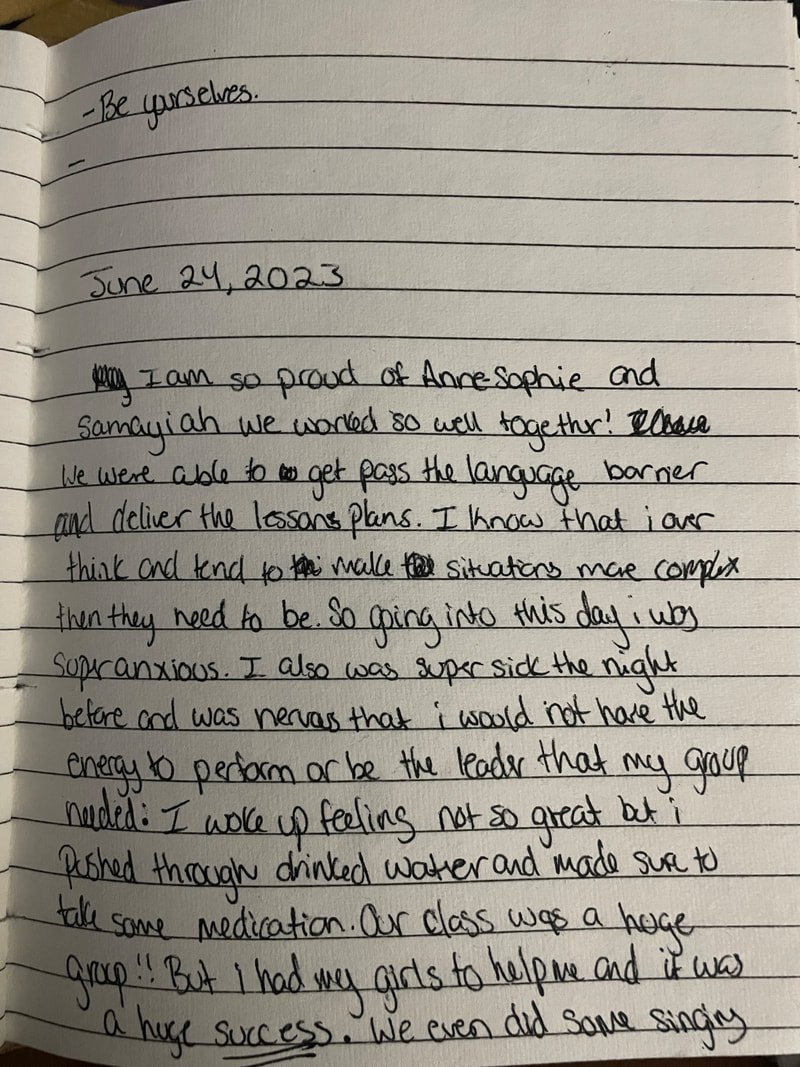 - Be yourselves.
-
June 24, 2023
I am so proud of Anne-Sophie and
Samayiah we worked so well together!
We were able to get pass the language barrier
and deliver the lessons plans. I know that i over
think and tend to make situations more complex
then they need to be. So going into this day i was
super anxious. I also was super sick the night
before and was nervous that i would not have the
energy to perform or be the leader that my group
needed. I woke up feeling not so great but i
pushed through drinked water and made sure to
take some medication. Our class was a huge
group!! But i had my girls to help me and it was
a huge success. We even did some singing